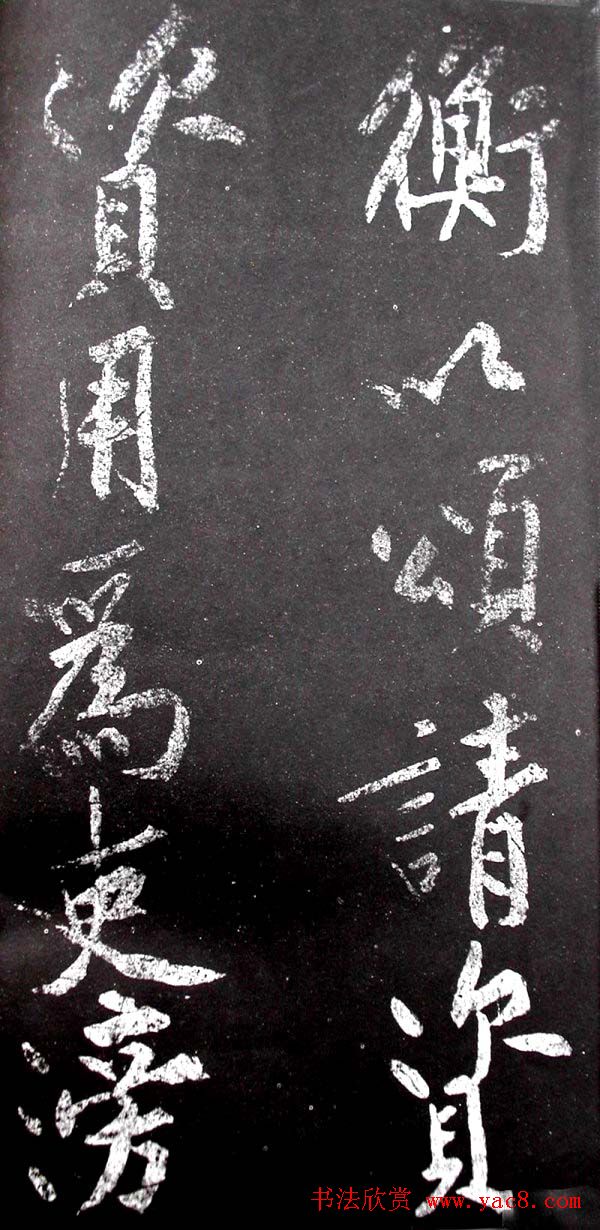 衡以頌請資
資用爲吏滂
书法欣赏 www.yac8.com